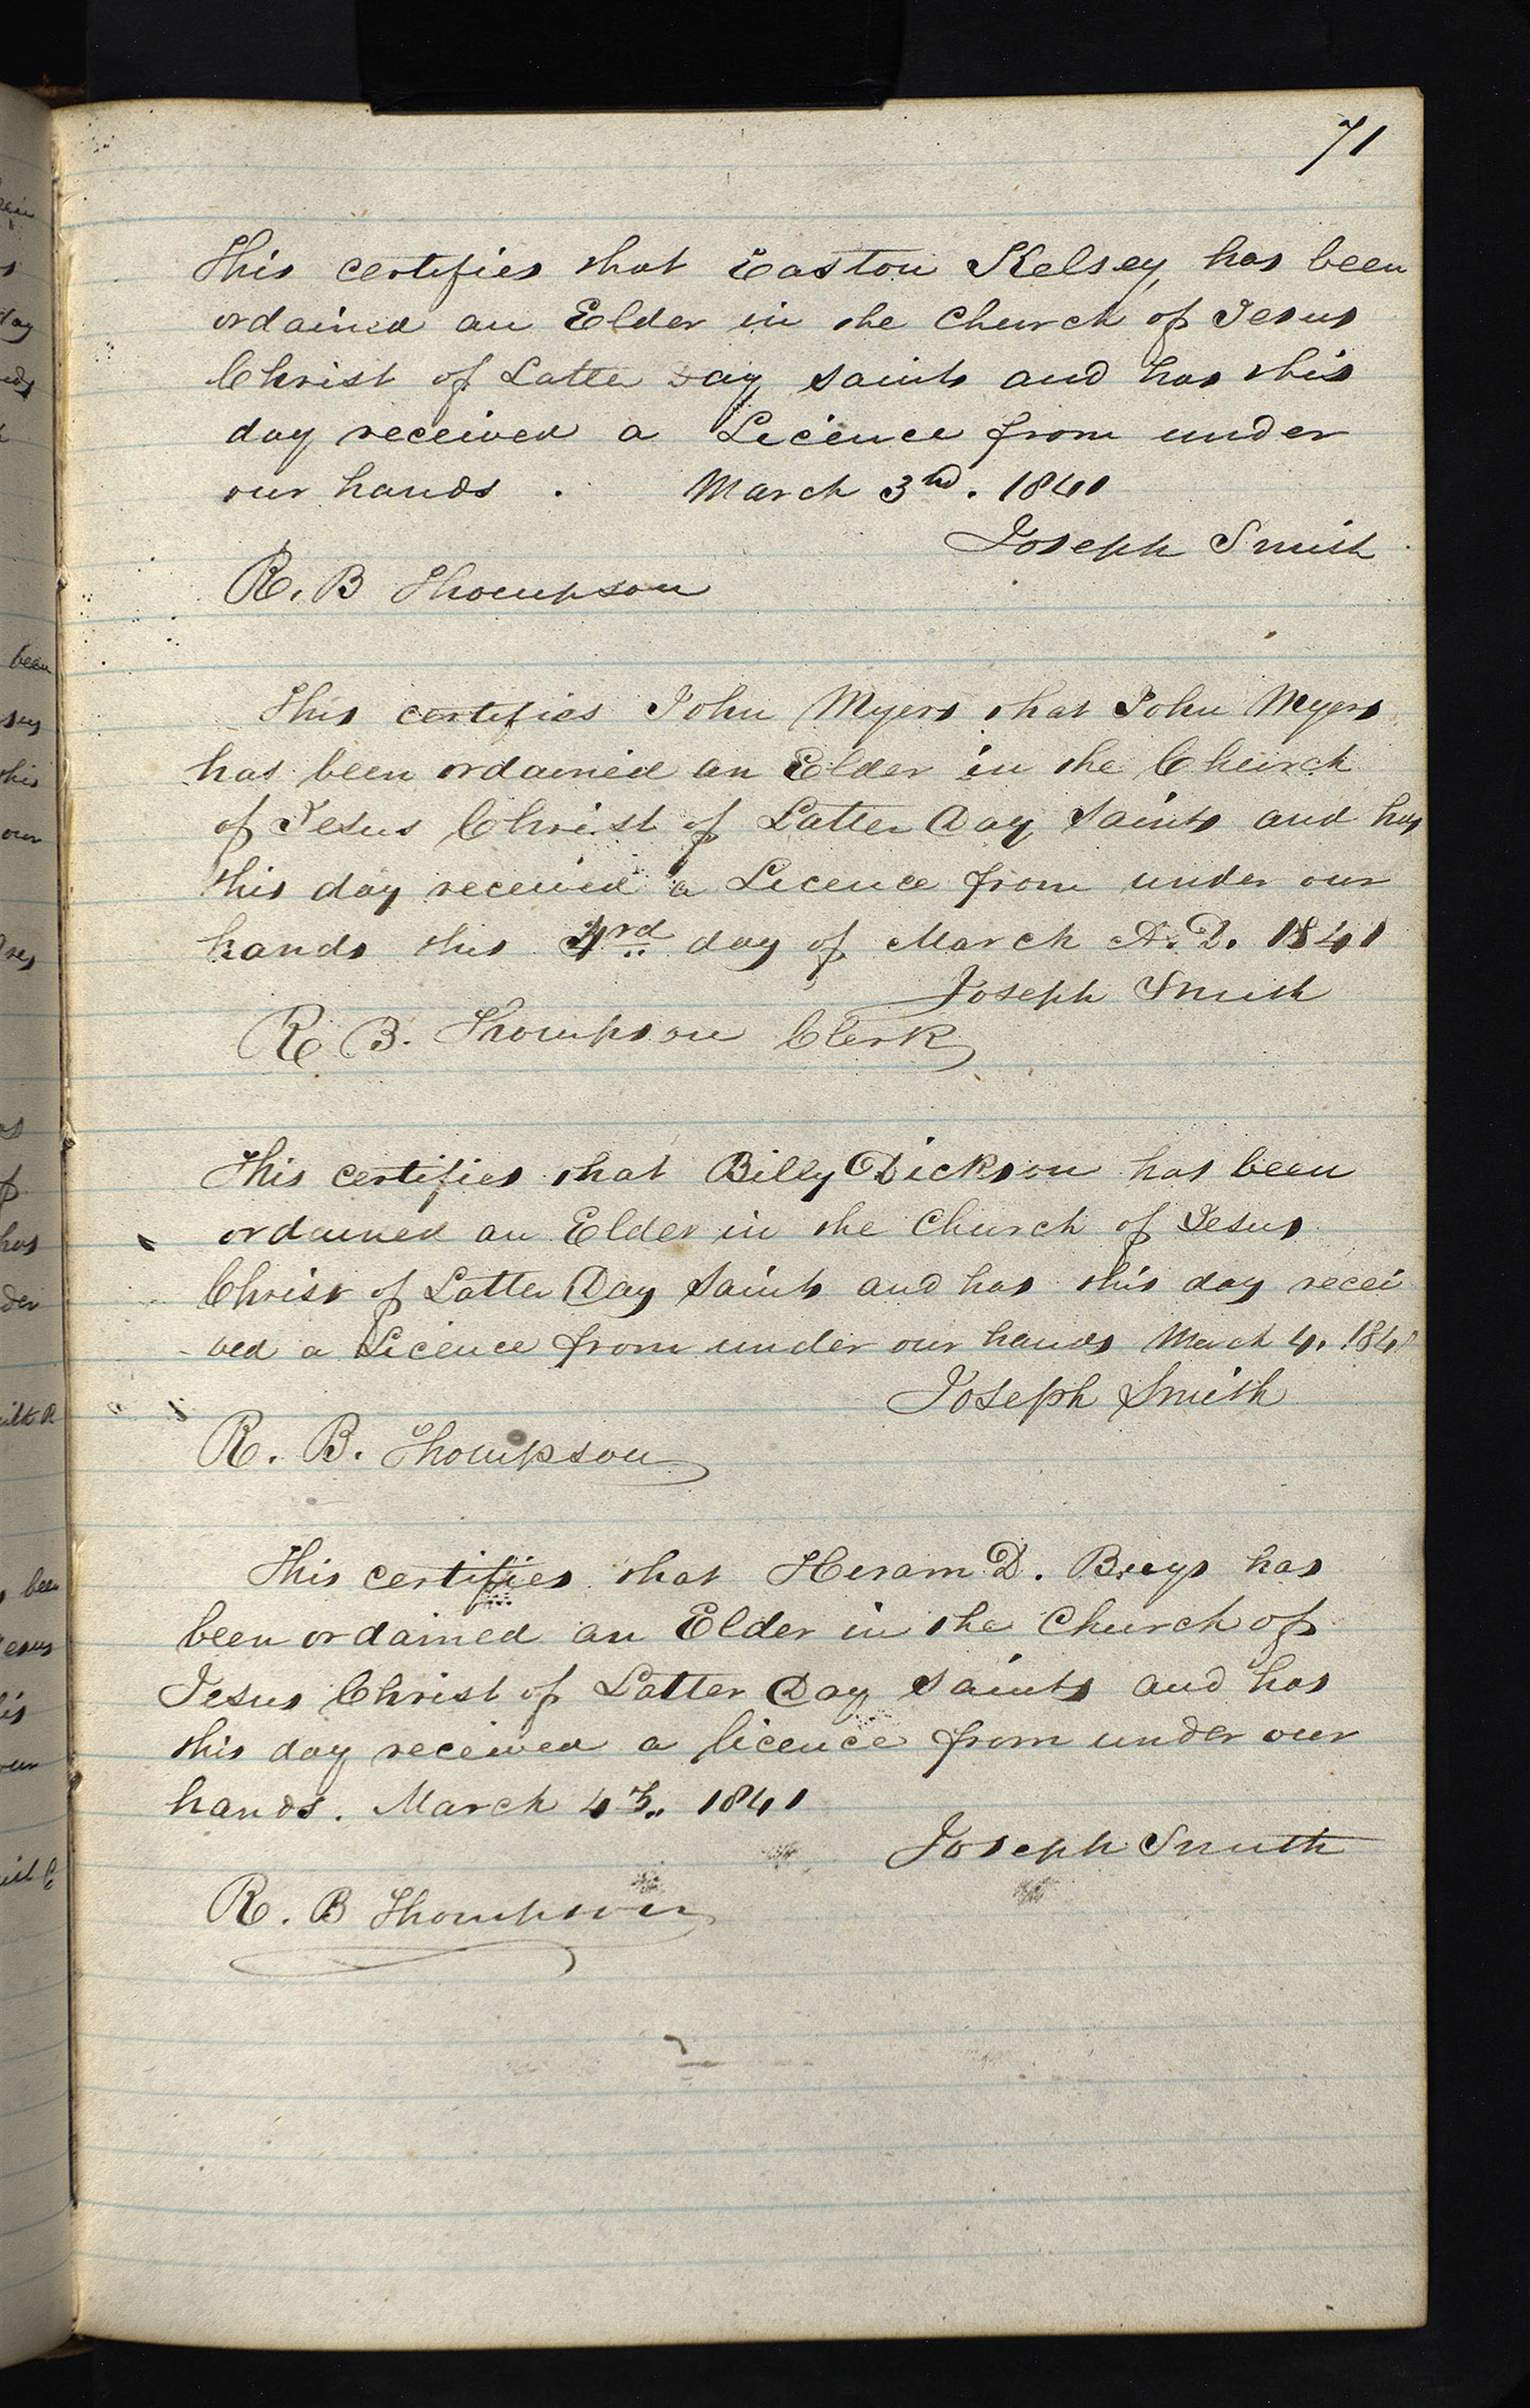 71
This certifies that Easton Kelsey has been
ordained an Elder in the Church of Jesus
Christ of Latter Day Saints and has this
day received a Licence from under
our hands . March 3rd. 1841
Joseph Smith
R. B Thompson
This certifies John Myers that John Myers
has been ordained an Elder in the Church
of Jesus Christ of Latter Day Saints and has
this day received a Licence from under our
hands this 4rd day of March A. D. 1841
Joseph Smith
R B. Thompson Clerk
This certifies that Billy Dickson has been
ordained an Elder in the Church of Jesus
Christ of Latter Day Saints and has this day recei
ved a Licence from under our hands March 4. 1841
Joseph Smith
R. B. Thompson
This certifies that Hiram D. Buys has
been ordained an Elder in the Church of
Jesus Christ of Latter Day Saints and has
this day received a licence from under our
hands. March 4th. 1841
Joseph Smith
R. B Thompson